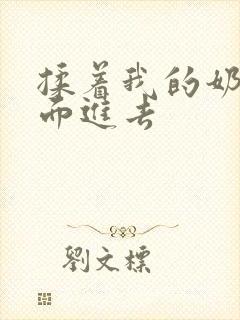 揉着我的奶
而进去
劉文標